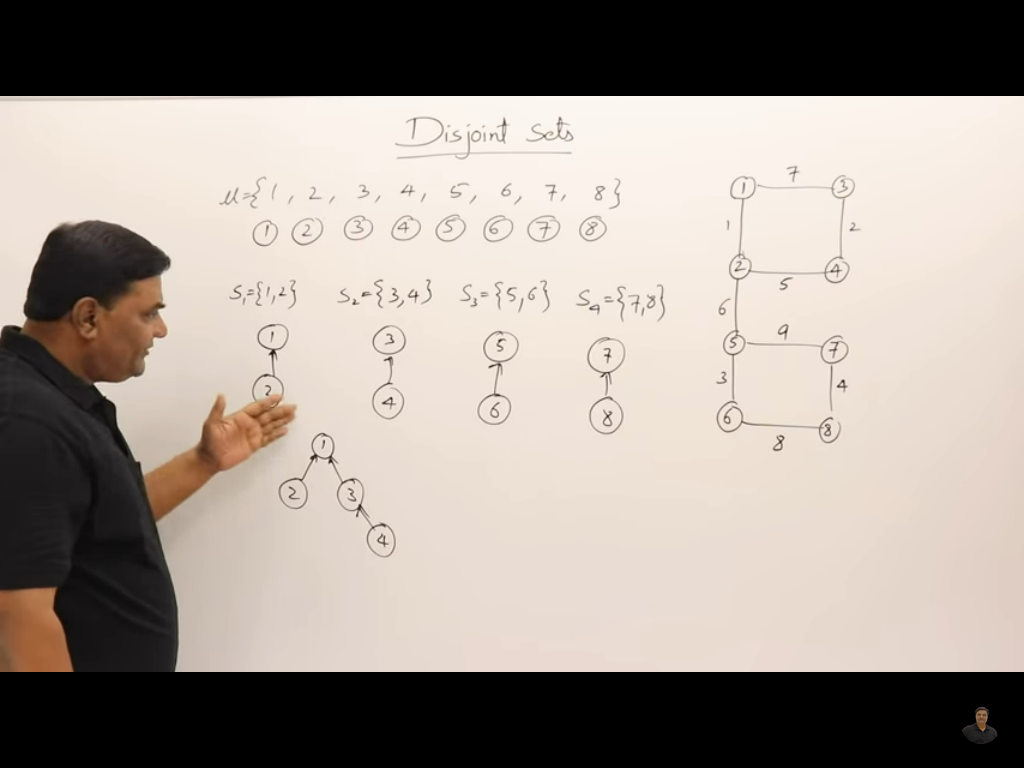 Disjoint Sets
μ={1, 2, 3, 4, 5, 6, 7, 8}
1 2 3 4 5 6 7 8
S₁={1,2} S₂={3,4} S₃={5,6} S₄={7,8}
1 3 5 7
2 4 6 8
1
2 3
4
1 7 3
1 2
2 5 4
6
5 9 7
3 4
6 8 8